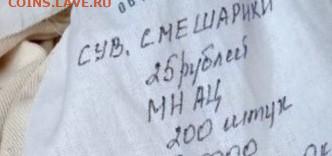 COINS.LAVE.RU
СУВ. СМЕШАРИКИ
25 рублей
МН АЦ
200 штук